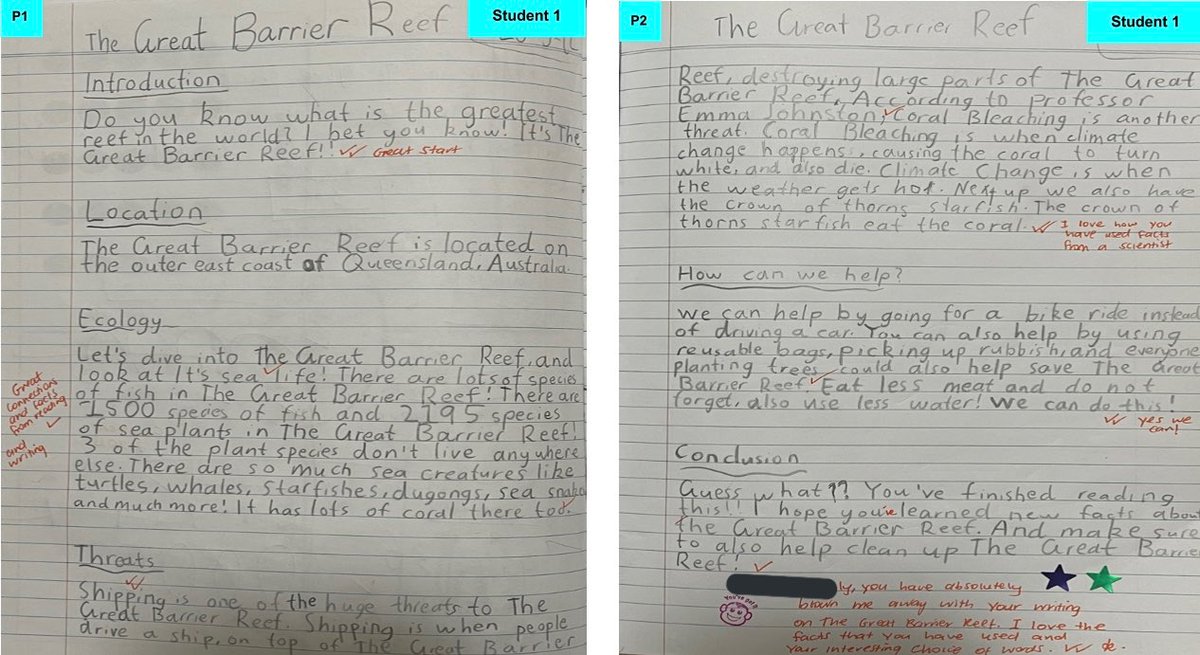 P1
Student 1
The Great Barrier Reef
Introduction
Do you know what is the greatest
reef in the world? I bet you know! It's The
Great Barrier Reef!! Great start
Location
The Great Barrier Reef is located on
the outer east coast of Queensland, Australia.
Ecology
Let's dive into The Great Barrier Reef, and
look at It's sea life! There are lots of species
of fish in The Great Barrier Reef! There are
1500 species of fish and 2195 species
of sea plants in The Great Barrier Reef!
3 of the plant species don't live anywhere
else. There are so much sea creatures like
turtles, whales, starfishes, dugongs, sea snake
and much more! It has lots of coral there too.
Great
connections
and facts
from reading
and
writing
Threats
Shipping is one of the huge threats to The
Great Barrier Reef. Shipping is when people
drive a ship, on top of The Great Barrier
P2
Student 1
The Great Barrier Reef
Reef, destroying large parts of The Great
Barrier Reef. According to professor
Emma Johnston, Coral Bleaching is another
threat. Coral Bleaching is when climate
change happens, causing the coral to turn
white, and also die. Climate Change is when
the weather gets hot. Next up we also have
the crown of thorns starfish. The crown of
thorns starfish eat the coral.
I love how you
have used facts
from a scientist
How can we help?
We can help by going for a bike ride instead
of driving a car. You can also help by using
reusable bags, picking up rubbish, and everyone
planting trees could also help save The Great
Barrier Reef. Eat less meat and do not
forget, also use less water! We can do this!
yes we
can!
Conclusion
Guess what?? You've finished reading
this!! I hope you've learned new facts about
the Great Barrier Reef. And make sure
to also help clean up The Great Barrier
Reef!
ly, you have absolutely
blown me away with your writing
on The Great Barrier Reef. I love the
facts that you have used and
your interesting choice of words.